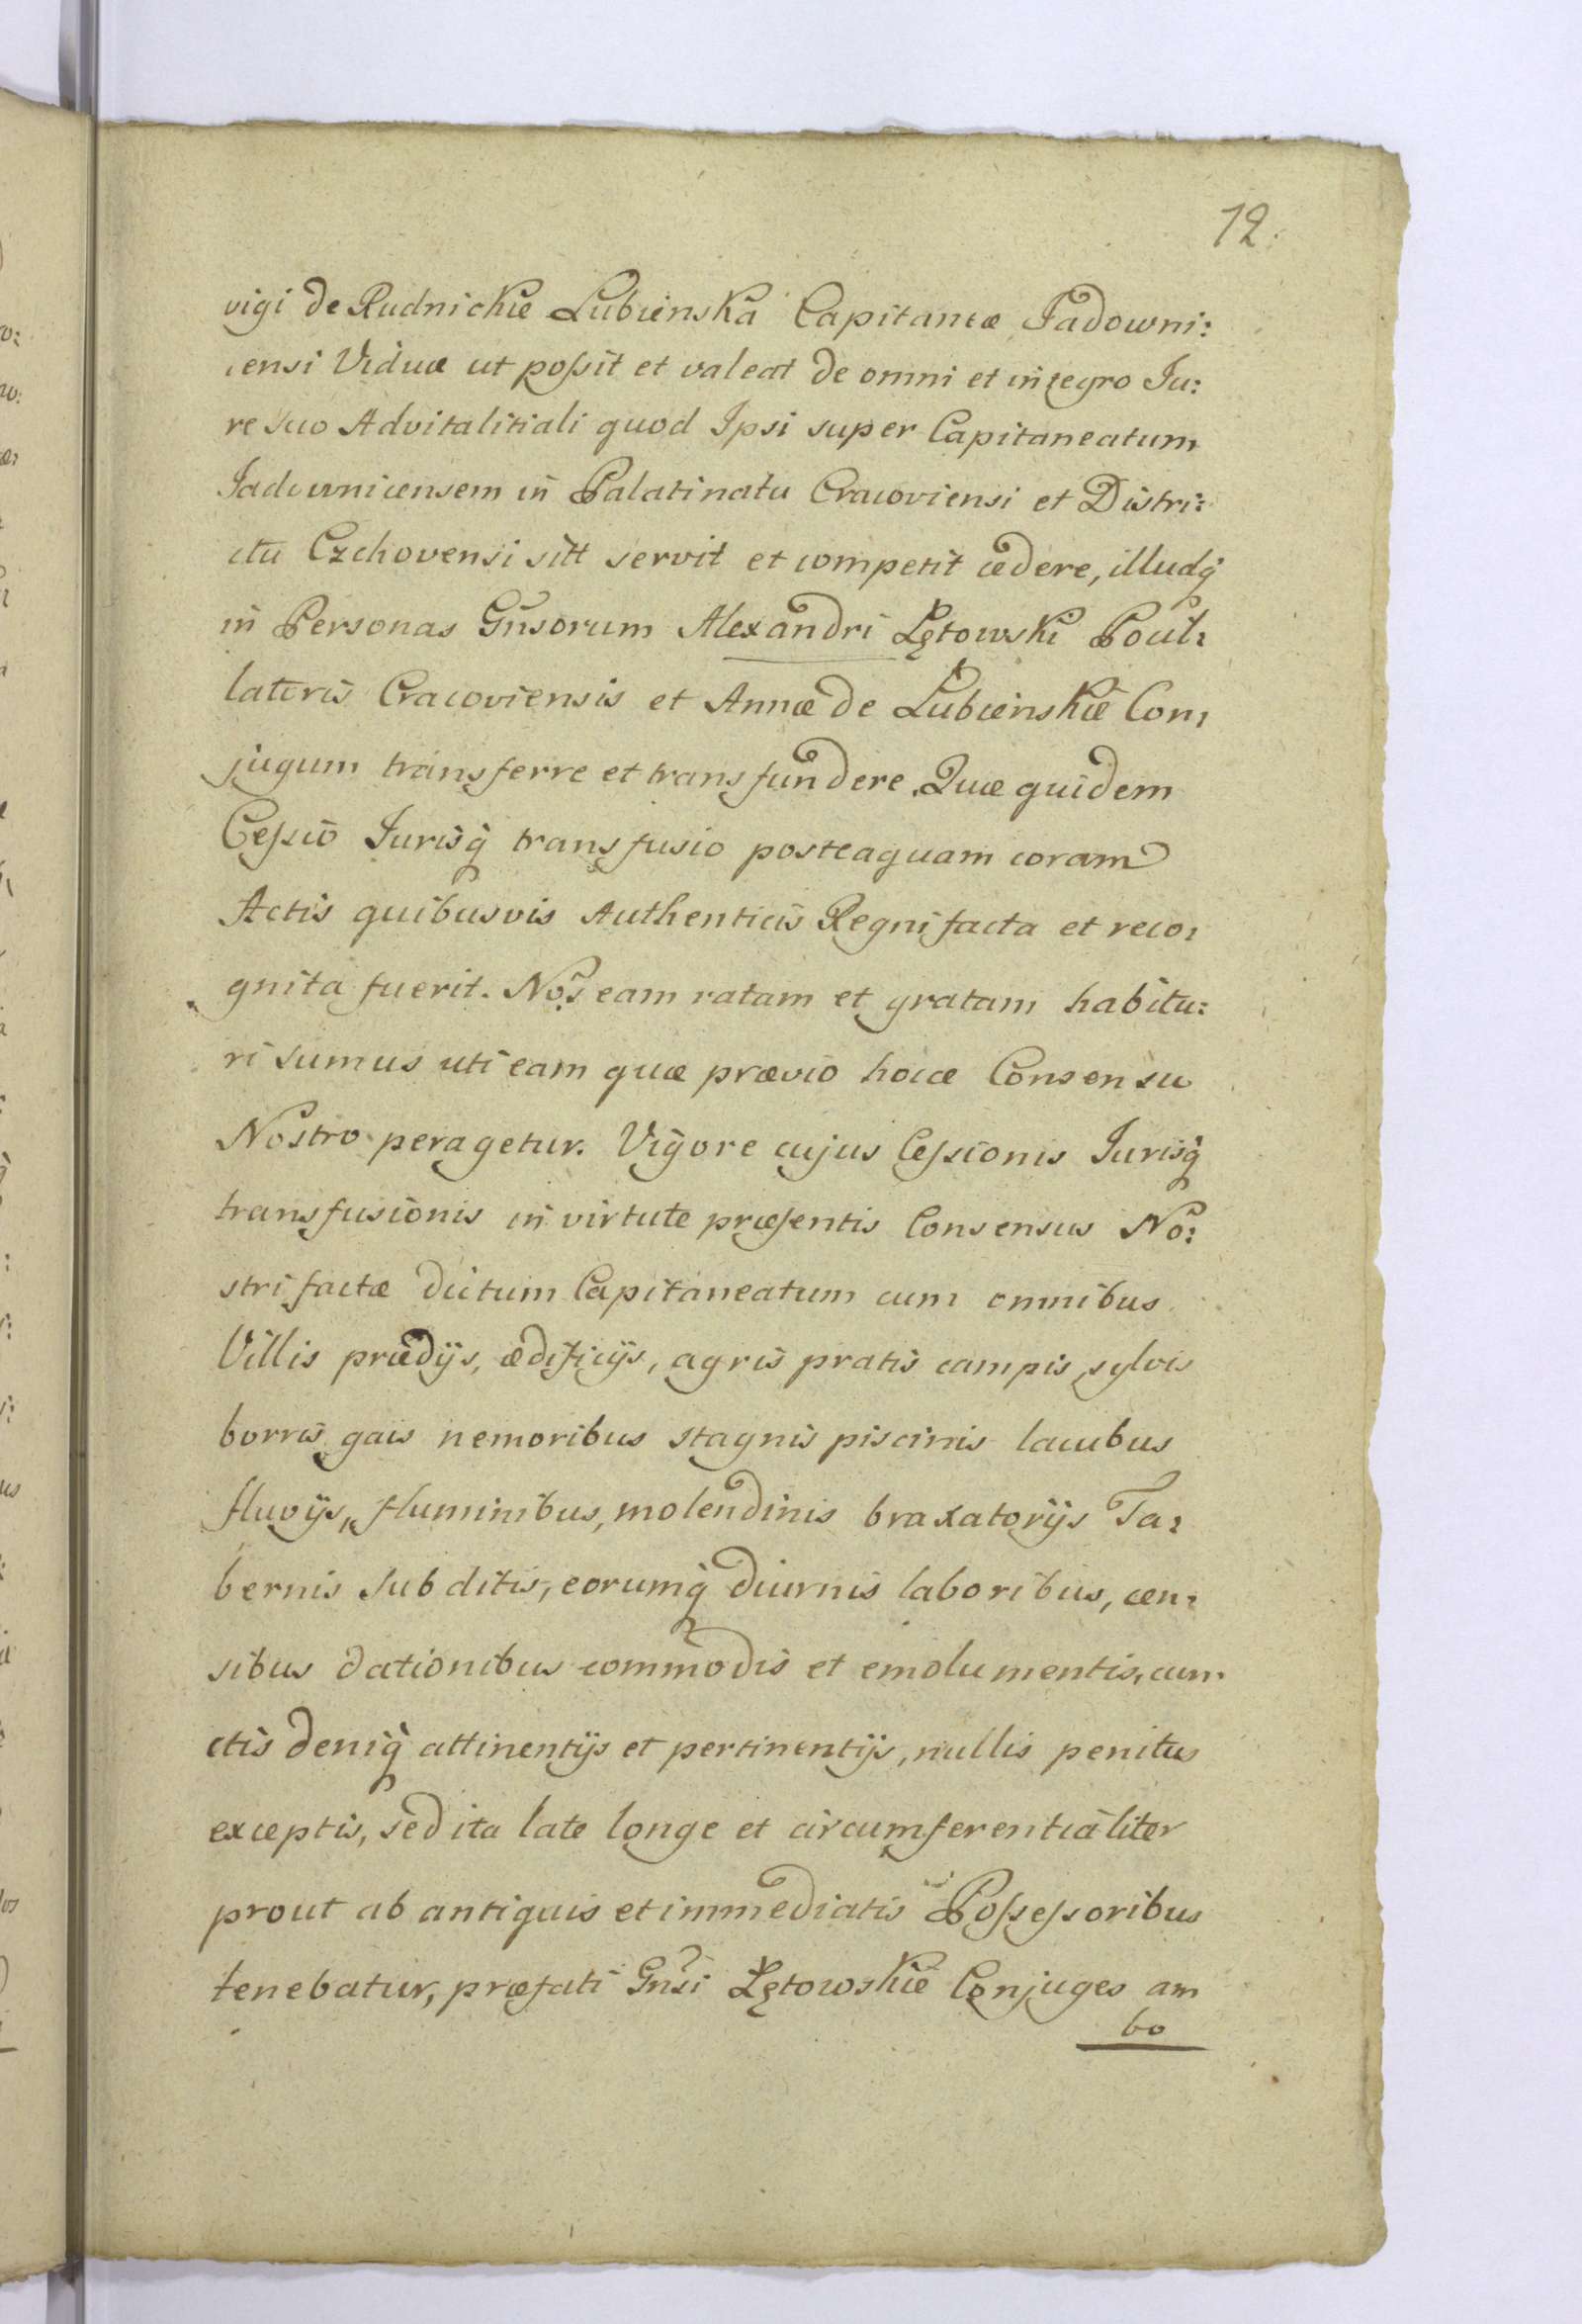 12.
vigi de Rudnickie Lubienska Capitaneæ Jadowni:
censi Viduæ ut possit et valeat de omni et integro Ju:
re suo Advitalitiali quod Ipsi super Capitaneatum
Jadownicensem in Palatinatu Cracoviensi et Distri:
ctu Czchovensi sitt servit et competit cedere, illudq
in Personas Gnsorum Alexandri Łętowski Pocil:
lateris Cracoviensis et Annæ de Łubienskie Con:
jugum transferre et transfundere. Quæ quidem
Cessio Jurisq transfusio posteaquam coram
Actis quibusvis Authenticis Regni facta et reco:
gnita fuerit. Nos eam ratam et gratam habitu:
ri sumus uti eam quæ prævio hocce Consensu
Nostro peragetur. Vigore cujus Cessionis Jurisq
transfusionis in virtute præsentis Consensus No:
stri factæ dictum Capitaneatum cum omnibus
Villis prædijs, ædificijs, agris pratis campis sylvis
borris gais nemoribus stagnis piscinis lacubus
fluvijs, fluminibus, molendinis braxatorijs Ta:
bernis Subditis, eorumq diurnis laboribus, cen:
sibus dationibus commodis et emolumentis, cun:
ctis deniq attinentijs et pertinentijs, nullis penitus
exceptis, sed ita late longe et circumferentialiter
prout ab antiquis et immediatis Possessoribus
tenebatur, præfati Gnsi Łętowskie Conjuges am
bo